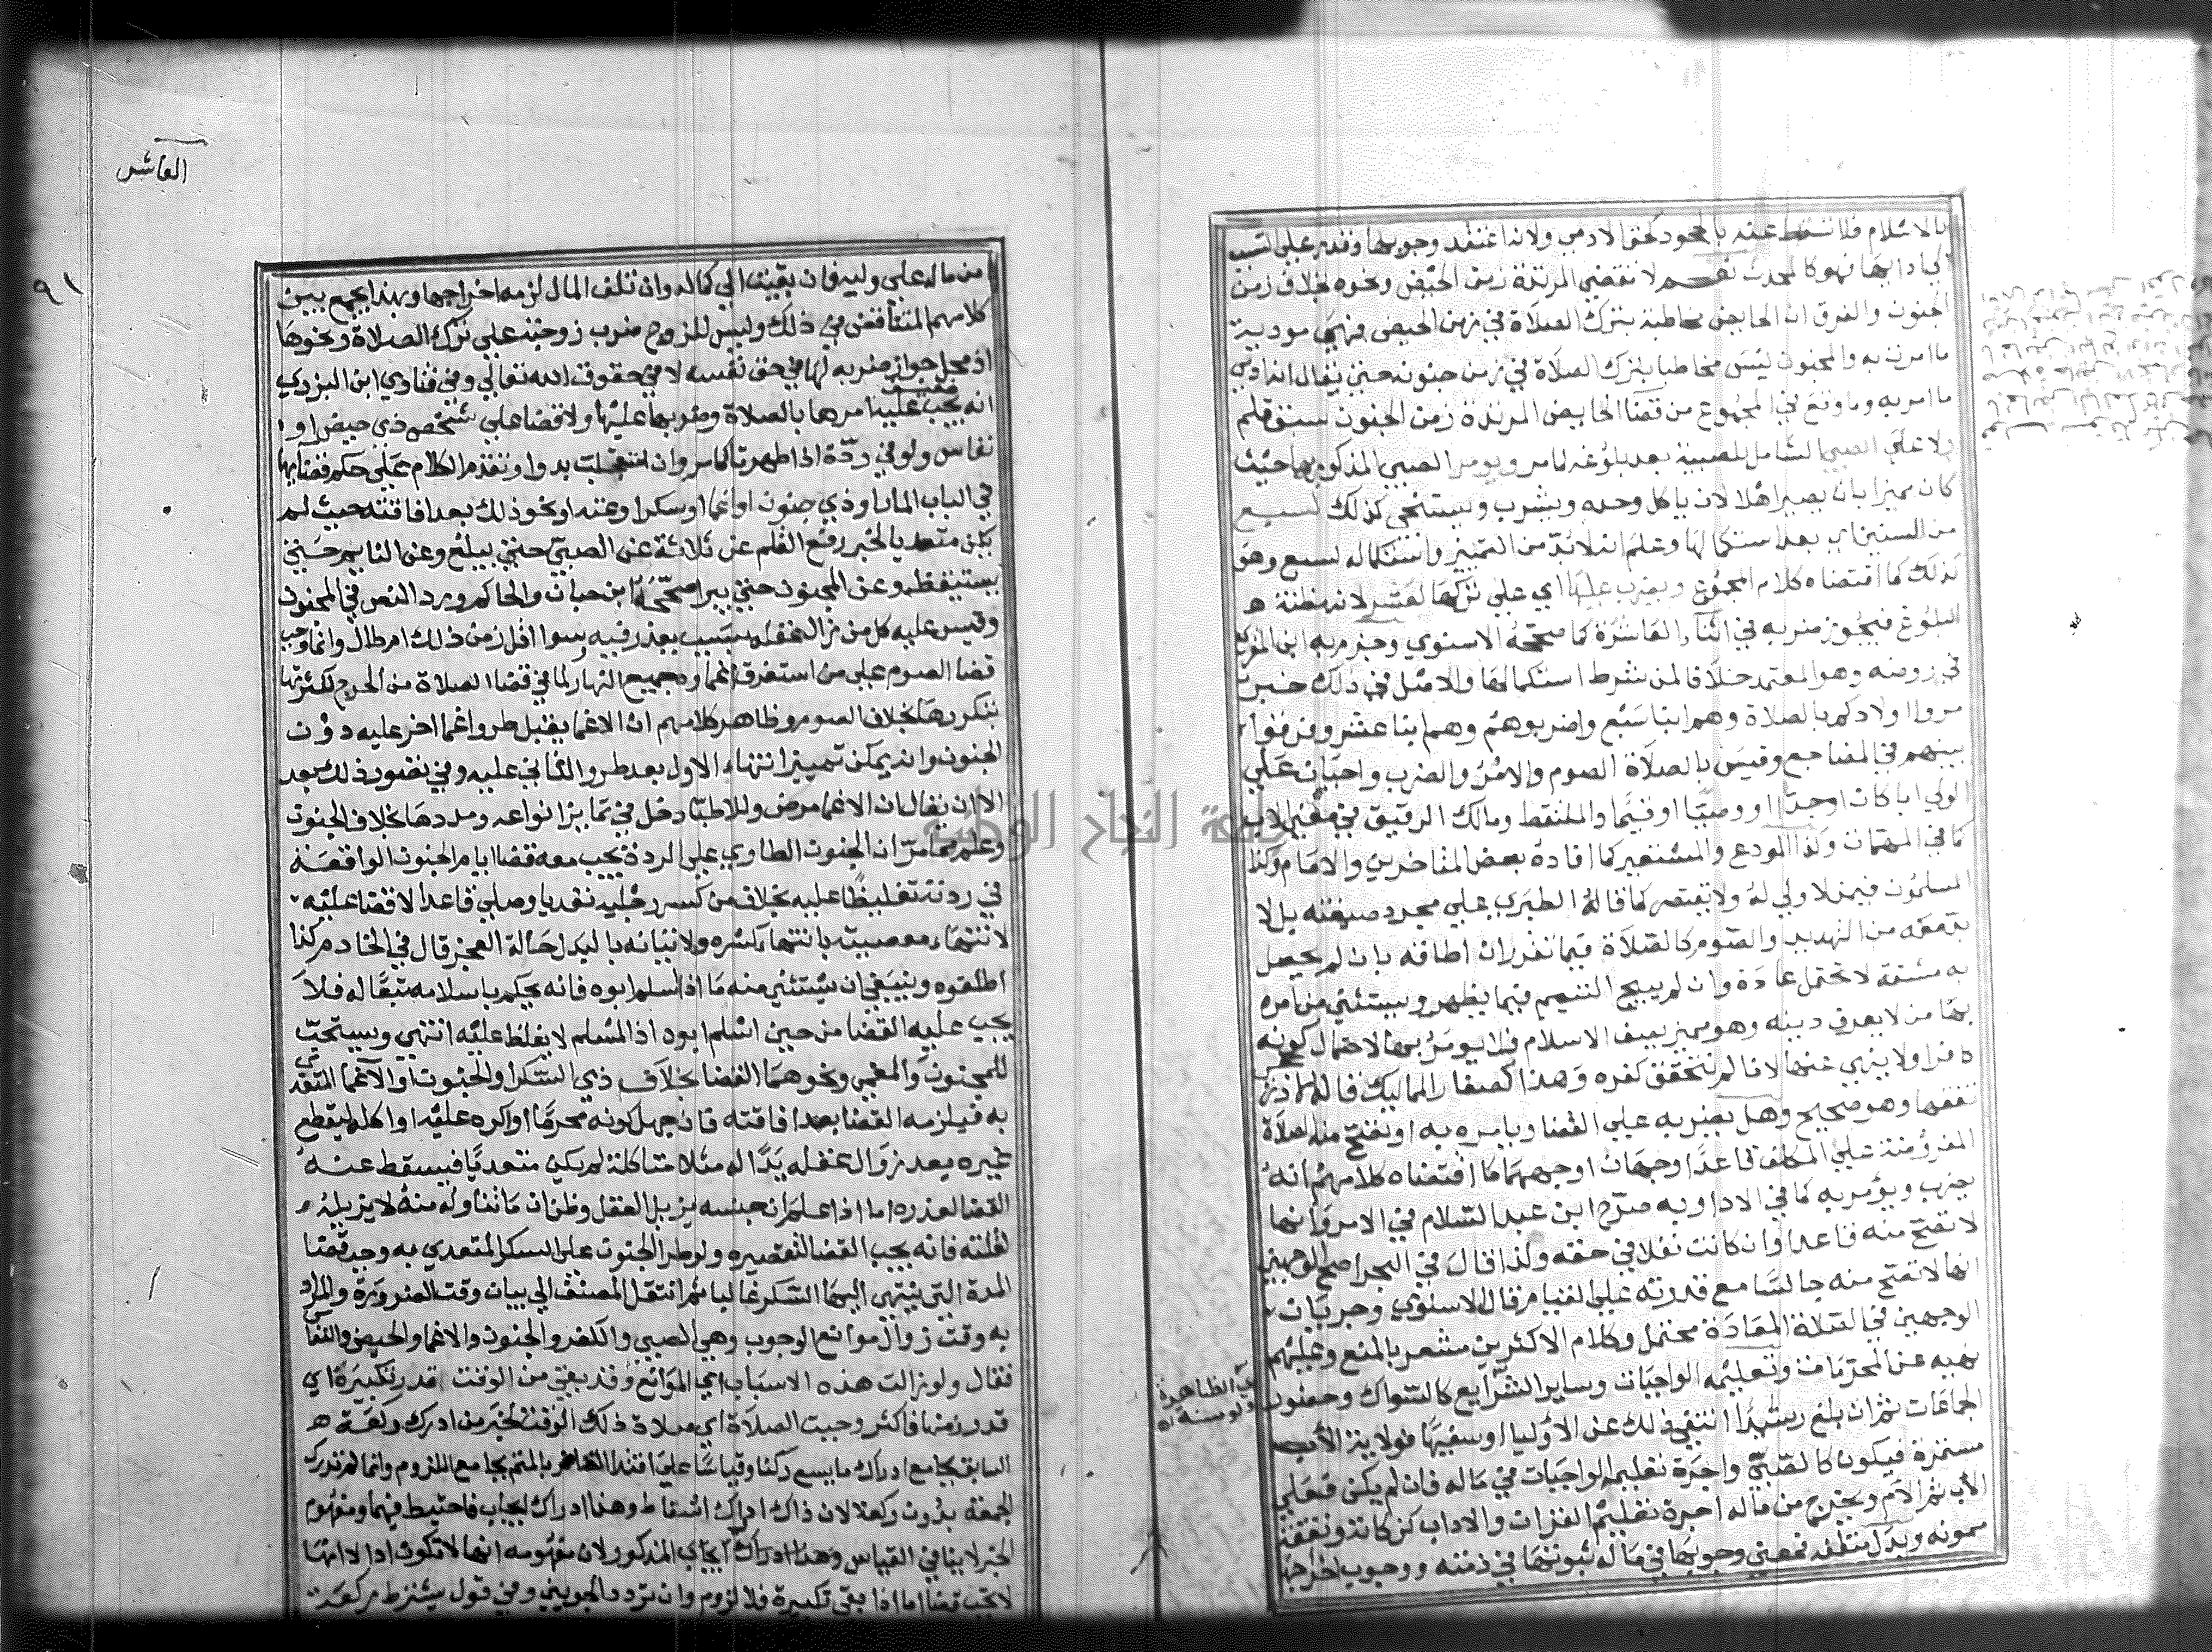 بالاسلام فلا تسقط عنه بالجحود كحق الادمي ولانه اعتقد وجوبها وقدر علي التسبب
الي ادايها فهو كالمحدث نعم لا تقضي المرتدة زمن الحيض ونحوه بخلاف زمن
الجنون والفرق ان الحايض مخاطبة بترك الصلاة في زمن الحيض فهي مودية
ما امرت به والمجنون ليس مخاطبا بترك الصلاة في زمن جنونه حتي يقال انه ادي
ما امر به وما وقع في المجموع من قضا الحايض المرتدة زمن الجنون سبق قلم
ولا علي الصبي الشامل للصبية بعد بلوغه لما مر ويومر الصبي المذكور بها حيث
كان مميزا بان يصير اهلا لان ياكل وحده ويشرب ويستنجي كذلك لسبع
من السنين اي بعد استكمالها وعلم انه لا بد من التمييز واستكماله لسبع وهو
كذلك كما اقتضاه كلام المجموع ويضرب عليها اي علي تركها لعشر لانه مظنة
البلوغ فيجوز ضربه في اثناء العاشرة كما صححه الاسنوي وجزم به ابن المقري
في روضه وهو المعتمد خلافا لمن شرط استكمالها والاصل في ذلك خبر
مروا اولادكم بالصلاة وهم ابنا سبع واضربوهم وهم ابنا عشر وفرقوا
بينهم في المضاجع وقيس بالصلاة الصوم والامر والضرب واجبان علي
الولي ابا كان او جدا او وصيا او قيما والملتقط ومالك الرقيق في معني الاب
كما في المهمات وكذا المودع والمستعير كما افاده بعض المتاخرين والامام وكذا
المسلمون فيمن لا ولي له ولا يقتصر كما قاله الطبري علي مجرد صيغته بل لا
بد معه من التهديد والصوم كالصلاة فيما تقرر ان اطاقه بان لم يحصل
به مشقة لا تحتمل عادة وان لم يبيح التيمم فيما يظهر ويستثني من امره
بها من لا يعرف دينه وهو مميز يصف الاسلام فلا يومر بها لاحتمال كونه
كافرا ولا ينهي عنها لانا لم نتحقق كفره وهذا كصغار المماليك قاله الاذرعي
تفقها وهو صحيح وهل يضربه علي القضا ويامره به او تصح منه الصلاة
المفروضة علي المكلف قاعدا وجهان اوجههما ما اقتضاه كلامهم انه
يضرب ويؤمر به كما في الادا وبه صرح ابن عبد السلام في الامر وانها
لا تصح منه قاعدا وان كانت نفلا في حقه ولذا قال في البحر اصح الوجهين
انها لا تصح منه جالسا مع قدرته علي القيام قال الاسنوي وجريان
الوجهين في الصلاة المعادة محتمل وكلام الاكثرين مشعر بالمنع وعليهم
نهيه عن المحرمات وتعليمه الواجبات وساير الشرايع كالسواك وحضور
الجماعات ثم ان بلغ رشيدا انتفي ذلك عن الاوليا او سفيها فولاية الاب
مستمرة فيكون كالصبي واجرة تعليمه الواجبات في ماله فان لم يكن فعلي
الاب ثم الام ويخرج من ماله اجرة تعليم القران والاداب كزكاته ونفقة
ممونه وبدل متلفه فمعني وجوبها في ماله ثبوتها في ذمته ووجوب اخراجها
في الظاهرة
ولو سنة
العاشر
٩١
من ماله علي وليه فان بقيت الي كماله وان تلف المال لزمه اخراجها وبهذا يجمع بين
كلامهم المتناقض في ذلك وليس للزوج ضرب زوجته علي ترك الصلاة ونحوها
اذ محل جواز ضربه لها في حق نفسه لا في حقوق الله تعالي وفي فتاوي ابن البزري
انه يجب عليه امرها بالصلاة وضربها عليها ولا قضا علي شخص ذي حيض او
نفاس ولو في ردة اذا طهرتا كما مر وان استجلبت بدوا وتقدم الكلام علي حكم قضايها
في الباب المار او ذي جنون او اغما او سكر او عته او نحو ذلك بعد افاقته حيث لم
يكن متعديا لخبر رفع القلم عن ثلاثة عن الصبي حتي يبلغ وعن النايم حتي
يستيقظ وعن المجنون حتي يبرا صححه ابن حبان والحاكم ورد النص في المجنون
وقيس عليه كل من زال عقله بسبب يعذر فيه وسوا اقل زمن ذلك ام طال وانما وجب
قضا الصوم علي من استغرق اغماوه جميع النهار لما في قضا الصلاة من الحرج لكثرتها
بتكررها بخلاف الصوم وظاهر كلامهم ان الاغما يقبل طرو اغما اخر عليه دون
الجنون وانه يمكن تمييز انتهاء الاول بعد طرو الثاني عليه وفي تصور ذلك بعد
الا ان يقال ان الاغما مرض وللاطبا دخل في تمايز انواعه ومددها بخلاف الجنون
وعلم مما مر ان الجنون الطاري علي الردة يجب معه قضا ايام الجنون الواقعة
في ردته تغليظا عليه بخلاف من كسر رجليه تعديا وصلي قاعدا لا قضا عليه
لانتهاء معصيته بانتهاء كسره ولاتيانه بالبدل حالة العجز قال في الخادم كذا
اطلقوه وينبغي ان يستثني منه ما اذا اسلم ابوه فانه يحكم باسلامه تبعا له فلا
يجب عليه القضا من حين اسلم ابوه اذ المسلم لا يغلظ عليه انتهي ويستحب
للمجنون والمغمي ونحوهما القضا بخلاف ذي السكر او الجنون او الاغما المتعدي
به فيلزمه القضا بعد افاقته فان جهل كونه محرما او اكره عليه او اكله ليقطع
غيره بعد زوال عقله يدا له مثلا متاكلة لم يكن متعديا فيسقط عنه
القضا لعذره اما اذا علم ان جنسه يزيل العقل وظن ان ما تناوله منه لا يزيله
لقلته فانه يجب القضا لتقصيره ولو طرا الجنون علي السكر المتعدي به وجب قضا
المدة التي ينتهي اليها السكر غالبا ثم انتقل المصنف الي بيان وقت الضرورة والمراد
به وقت زوال موانع الوجوب وهي الصبي والكفر والجنون والاغما والحيض والنفاس
فقال ولو زالت هذه الاسباب اي الموانع وقد بقي من الوقت قدر تكبيرة اي
قدر زمنها فاكثر وجبت الصلاة اي صلاة ذلك الوقت لخبر من ادرك ركعة
السابق بجامع ادراك ما يسع ركنا وقياسا علي اقتدا القاصر بالمتم بجامع اللزوم وانما لم تدرك
الجمعة بدون ركعة لان ذاك ادراك اسقاط وهذا ادراك ايجاب فاحتيط فيهما ومفهوم
الخبر لا ينافي القياس وهذا ادراك ايجاب المذكور لان مفهومه انها لا تكون ادا لا انها
لا تجب قضا اما اذا بقي تكبيرة فلا لزوم وان تردد الجويني وفي قول يشترط ركعة